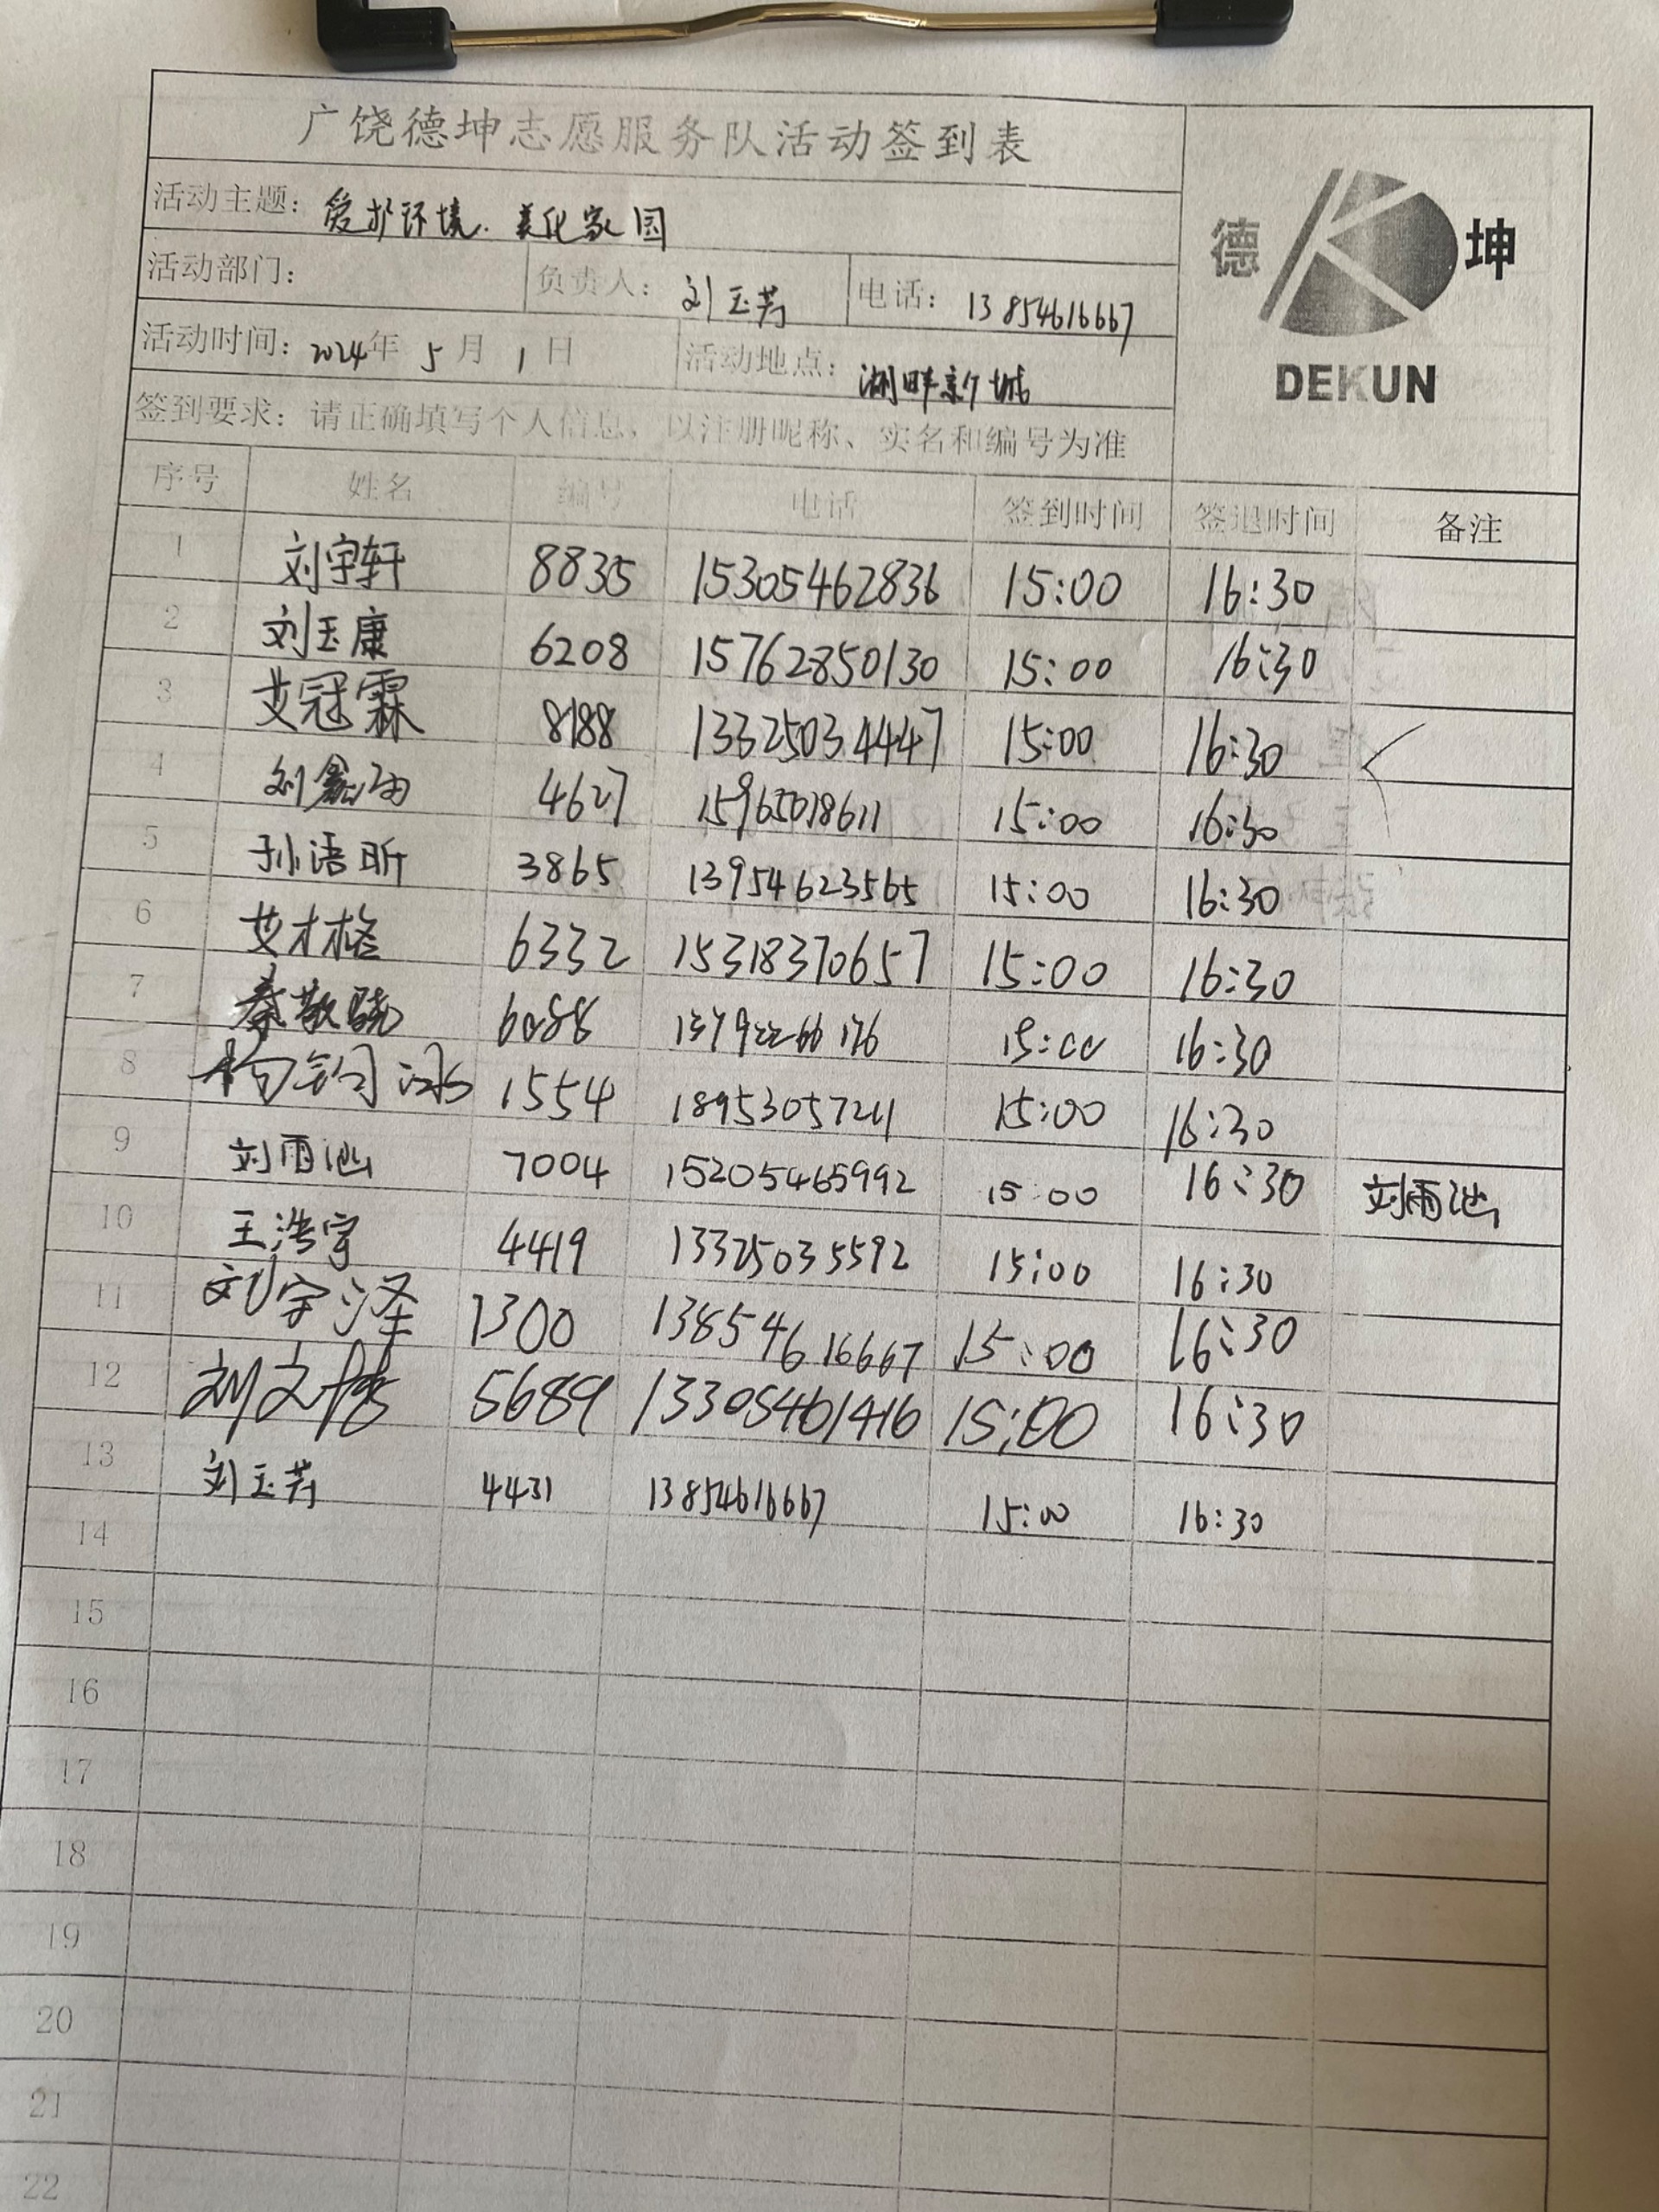 广饶德坤志愿服务队活动签到表
德 坤
DEKUN
活动主题：爱护环境.美化家园
活动部门： 负责人：刘玉芳 电话：13854616667
活动时间：2024年5月1日 活动地点：湖畔新城
签到要求：请正确填写个人信息，以注册昵称、实名和编号为准
序号 姓名 编号 电话 签到时间 签退时间 备注
1 刘宇轩 8835 15305462836 15:00 16:30
2 刘玉康 6208 15762850130 15:00 16:30
3 艾冠霖 8188 13325034447 15:00 16:30
4 4627 15965018611 15:00 16:30
5 孙语昕 3865 13954623565 15:00 16:30
6 艾才格 6332 15318370657 15:00 16:30
7 秦敬骁 6088 15:00 16:30
8 1554 18953057211 15:00 16:30
9 刘雨涵 7004 15205465992 15:00 16:30 刘雨涵
10 王浩宇 4419 13325035592 15:00 16:30
11 刘宇泽 1300 13854616667 15:00 16:30
12 刘文 5689 13305461416 15:00 16:30
13 刘玉芳 4431 13854616667 15:00 16:30
14
15
16
17
18
19
20
21
22